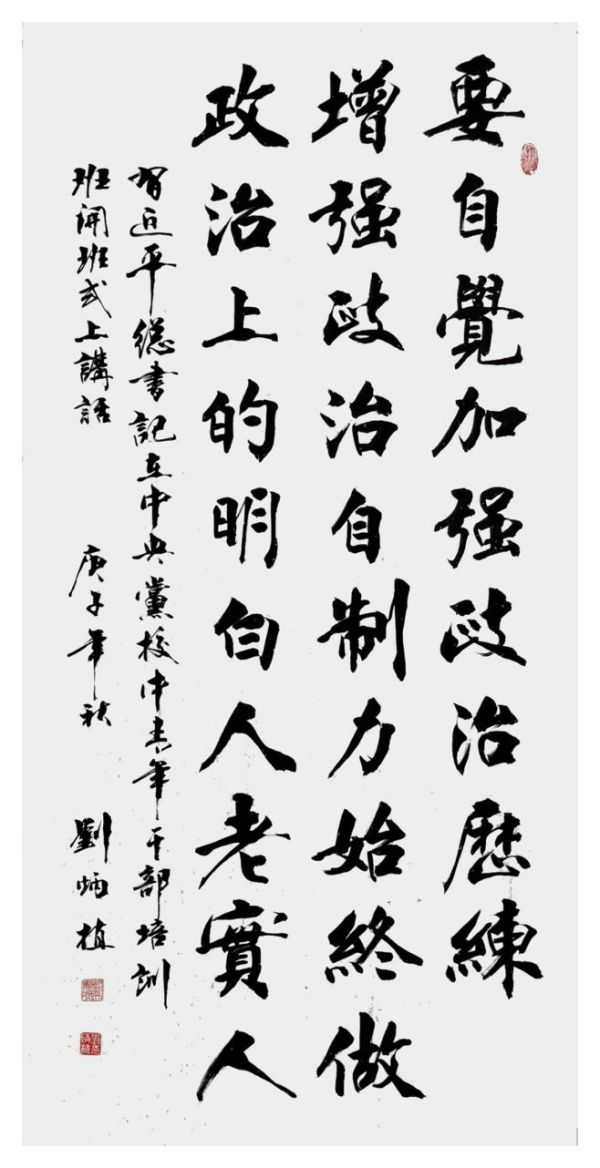 要自覺加强政治歷練
增强政治自制力始終做
政治上的明白人老實人
習近平總書記在中央黨校中青年干部培訓
班開班式上講話 庚子年秋 劉炳植